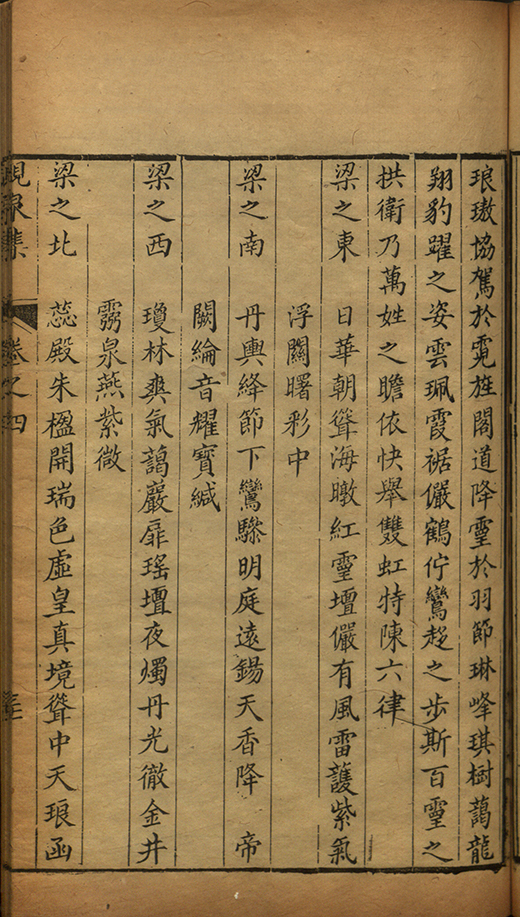 琅璈協駕於霓旌閣道降靈於羽節琳峰琪樹藹龍
翔豹躍之姿雲珮霞裾儼鶴佇鸞趍之步斯百靈之
拱衛乃萬姓之瞻依快舉雙虹特陳六律
梁之東　日華朝聳海暾紅靈壇儼有風雷護紫氣
浮關曙彩中
梁之南　丹輿絳節下鸞驂明庭遠錫天香降　帝
闕綸音耀寶緘
梁之西　瓊林爽氣藹嚴扉瑤壇夜燭丹光徹金井
靈泉燕紫微
梁之北　蕊殿朱楹開瑞色虛皇真境聳中天琅函
峴泉集　卷之四